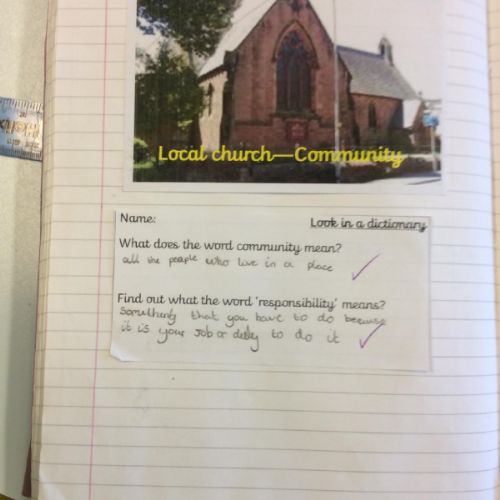 Local church—Community
Name:
Look in a dictionary
What does the word community mean?
all the people who live in a place
Find out what the word 'responsibility' means?
Something that you have to do because
it is your Job or duty to do it